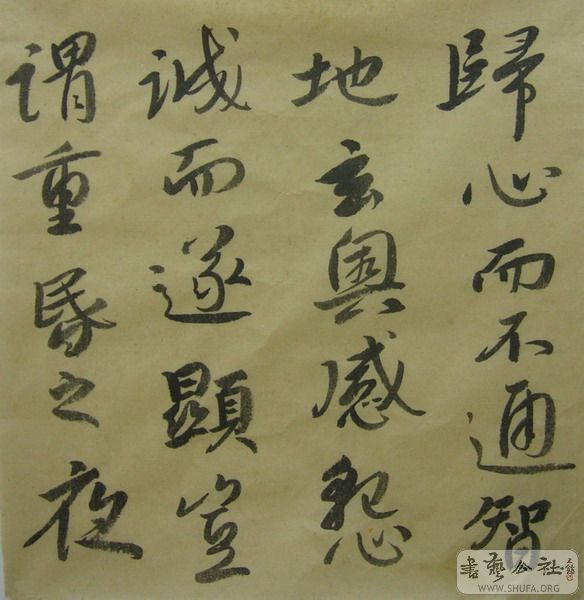 歸心而不通智
地玄奧感懇
誠而遂顯豈
謂重昏之夜
書藝公社
WWW.SHUFA.ORG